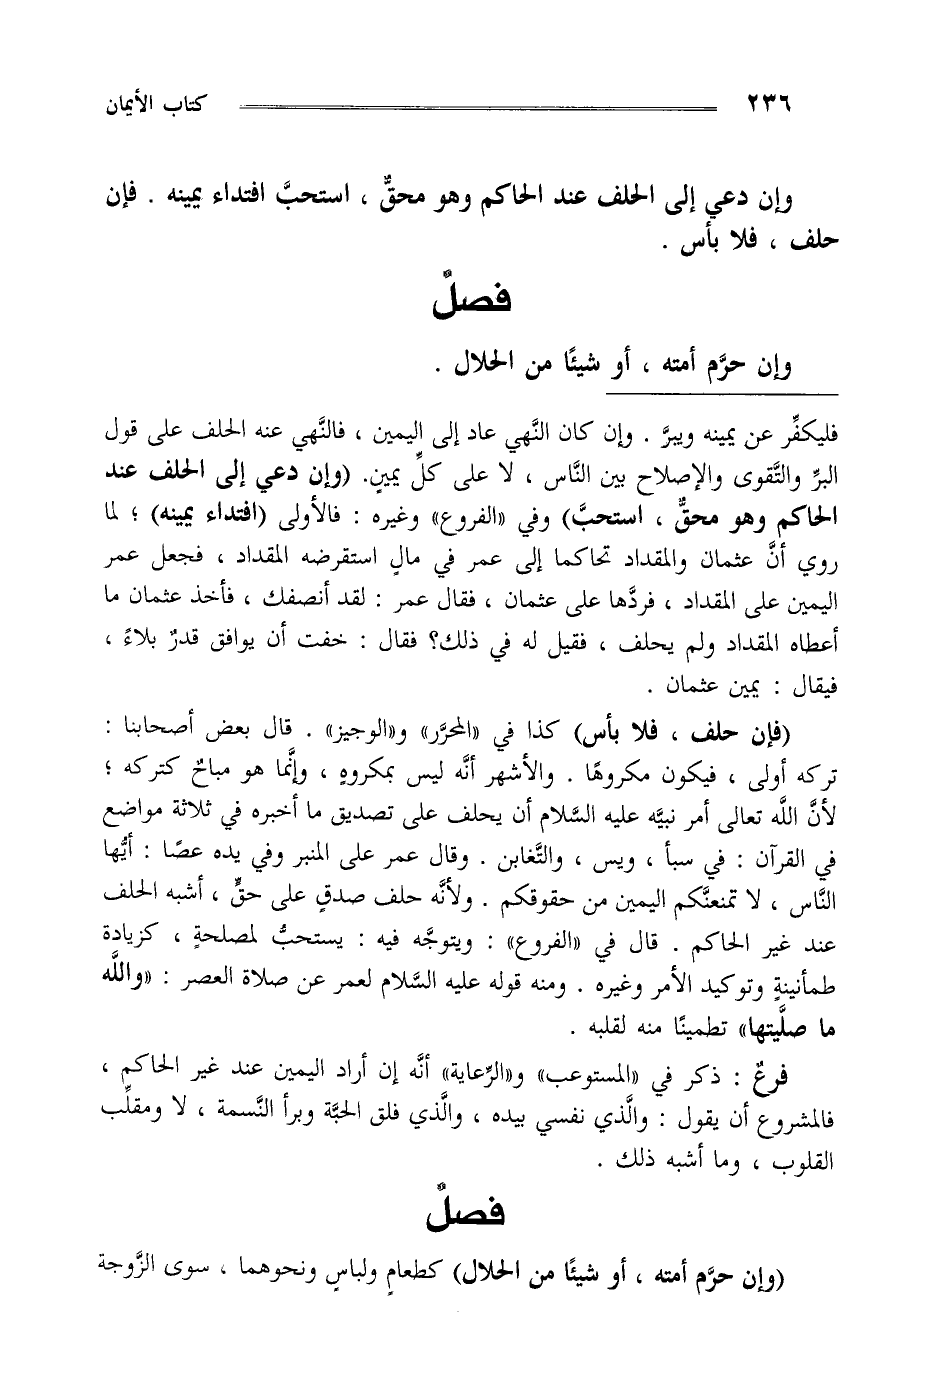 ٢٣٦ كتاب الأيمان
وإن دعي إلى الحلف عند الحاكم وهو محقٌّ ، استحبَّ افتداء يمينه . فإن
حلف ، فلا بأس .
فصلٌ
وإن حرَّم أمته ، أو شيئًا من الحلال .
فليكفِّر عن يمينه ويبرَّ . وإن كان النَّهي عاد إلى اليمين ، فالنَّهي عنه الحلف على قول
البرِّ والتَّقوى والإصلاح بين النَّاس ، لا على كلِّ يمينٍ. (وإن دعي إلى الحلف عند
الحاكم وهو محقٌّ ، استحبَّ) وفي «الفروع» وغيره : فالأولى (افتداء يمينه) ؛ لما
روي أنَّ عثمان والمقداد تحاكما إلى عمر في مالٍ استقرضه المقداد ، فجعل عمر
اليمين على المقداد ، فردَّها على عثمان ، فقال عمر : لقد أنصفك ، فأخذ عثمان ما
أعطاه المقداد ولم يحلف ، فقيل له في ذلك؟ فقال : خفت أن يوافق قدرٌ بلاءً ،
فيقال : يمين عثمان .
(فإن حلف ، فلا بأس) كذا في «المحرَّر» و«الوجيز» . قال بعض أصحابنا :
تركه أولى ، فيكون مكروهًا . والأشهر أنَّه ليس بمكروهٍ ، وإنَّما هو مباحٌ كتركه ؛
لأنَّ اللَّه تعالى أمر نبيَّه عليه السَّلام أن يحلف على تصديق ما أخبره في ثلاثة مواضع
في القرآن : في سبأ ، ويس ، والتَّغابن . وقال عمر على المنبر وفي يده عصًا : أيُّها
النَّاس ، لا تمنعنَّكم اليمين من حقوقكم . ولأنَّه حلف صدقٍ على حقٍّ ، أشبه الحلف
عند غير الحاكم . قال في «الفروع» : ويتوجَّه فيه : يستحبُّ لمصلحةٍ ، كزيادة
طمأنينةٍ وتوكيد الأمر وغيره . ومنه قوله عليه السَّلام لعمر عن صلاة العصر : «واللَّه
ما صلَّيتها» تطمينًا منه لقلبه .
فرعٌ : ذكر في «المستوعب» و«الرِّعاية» أنَّه إن أراد اليمين عند غير الحاكم ،
فالمشروع أن يقول : والَّذي نفسي بيده ، والَّذي فلق الحبَّة وبرأ النَّسمة ، لا ومقلِّب
القلوب ، وما أشبه ذلك .
فصلٌ
(وإن حرَّم أمته ، أو شيئًا من الحلال) كطعامٍ ولباسٍ ونحوهما ، سوى الزَّوجة